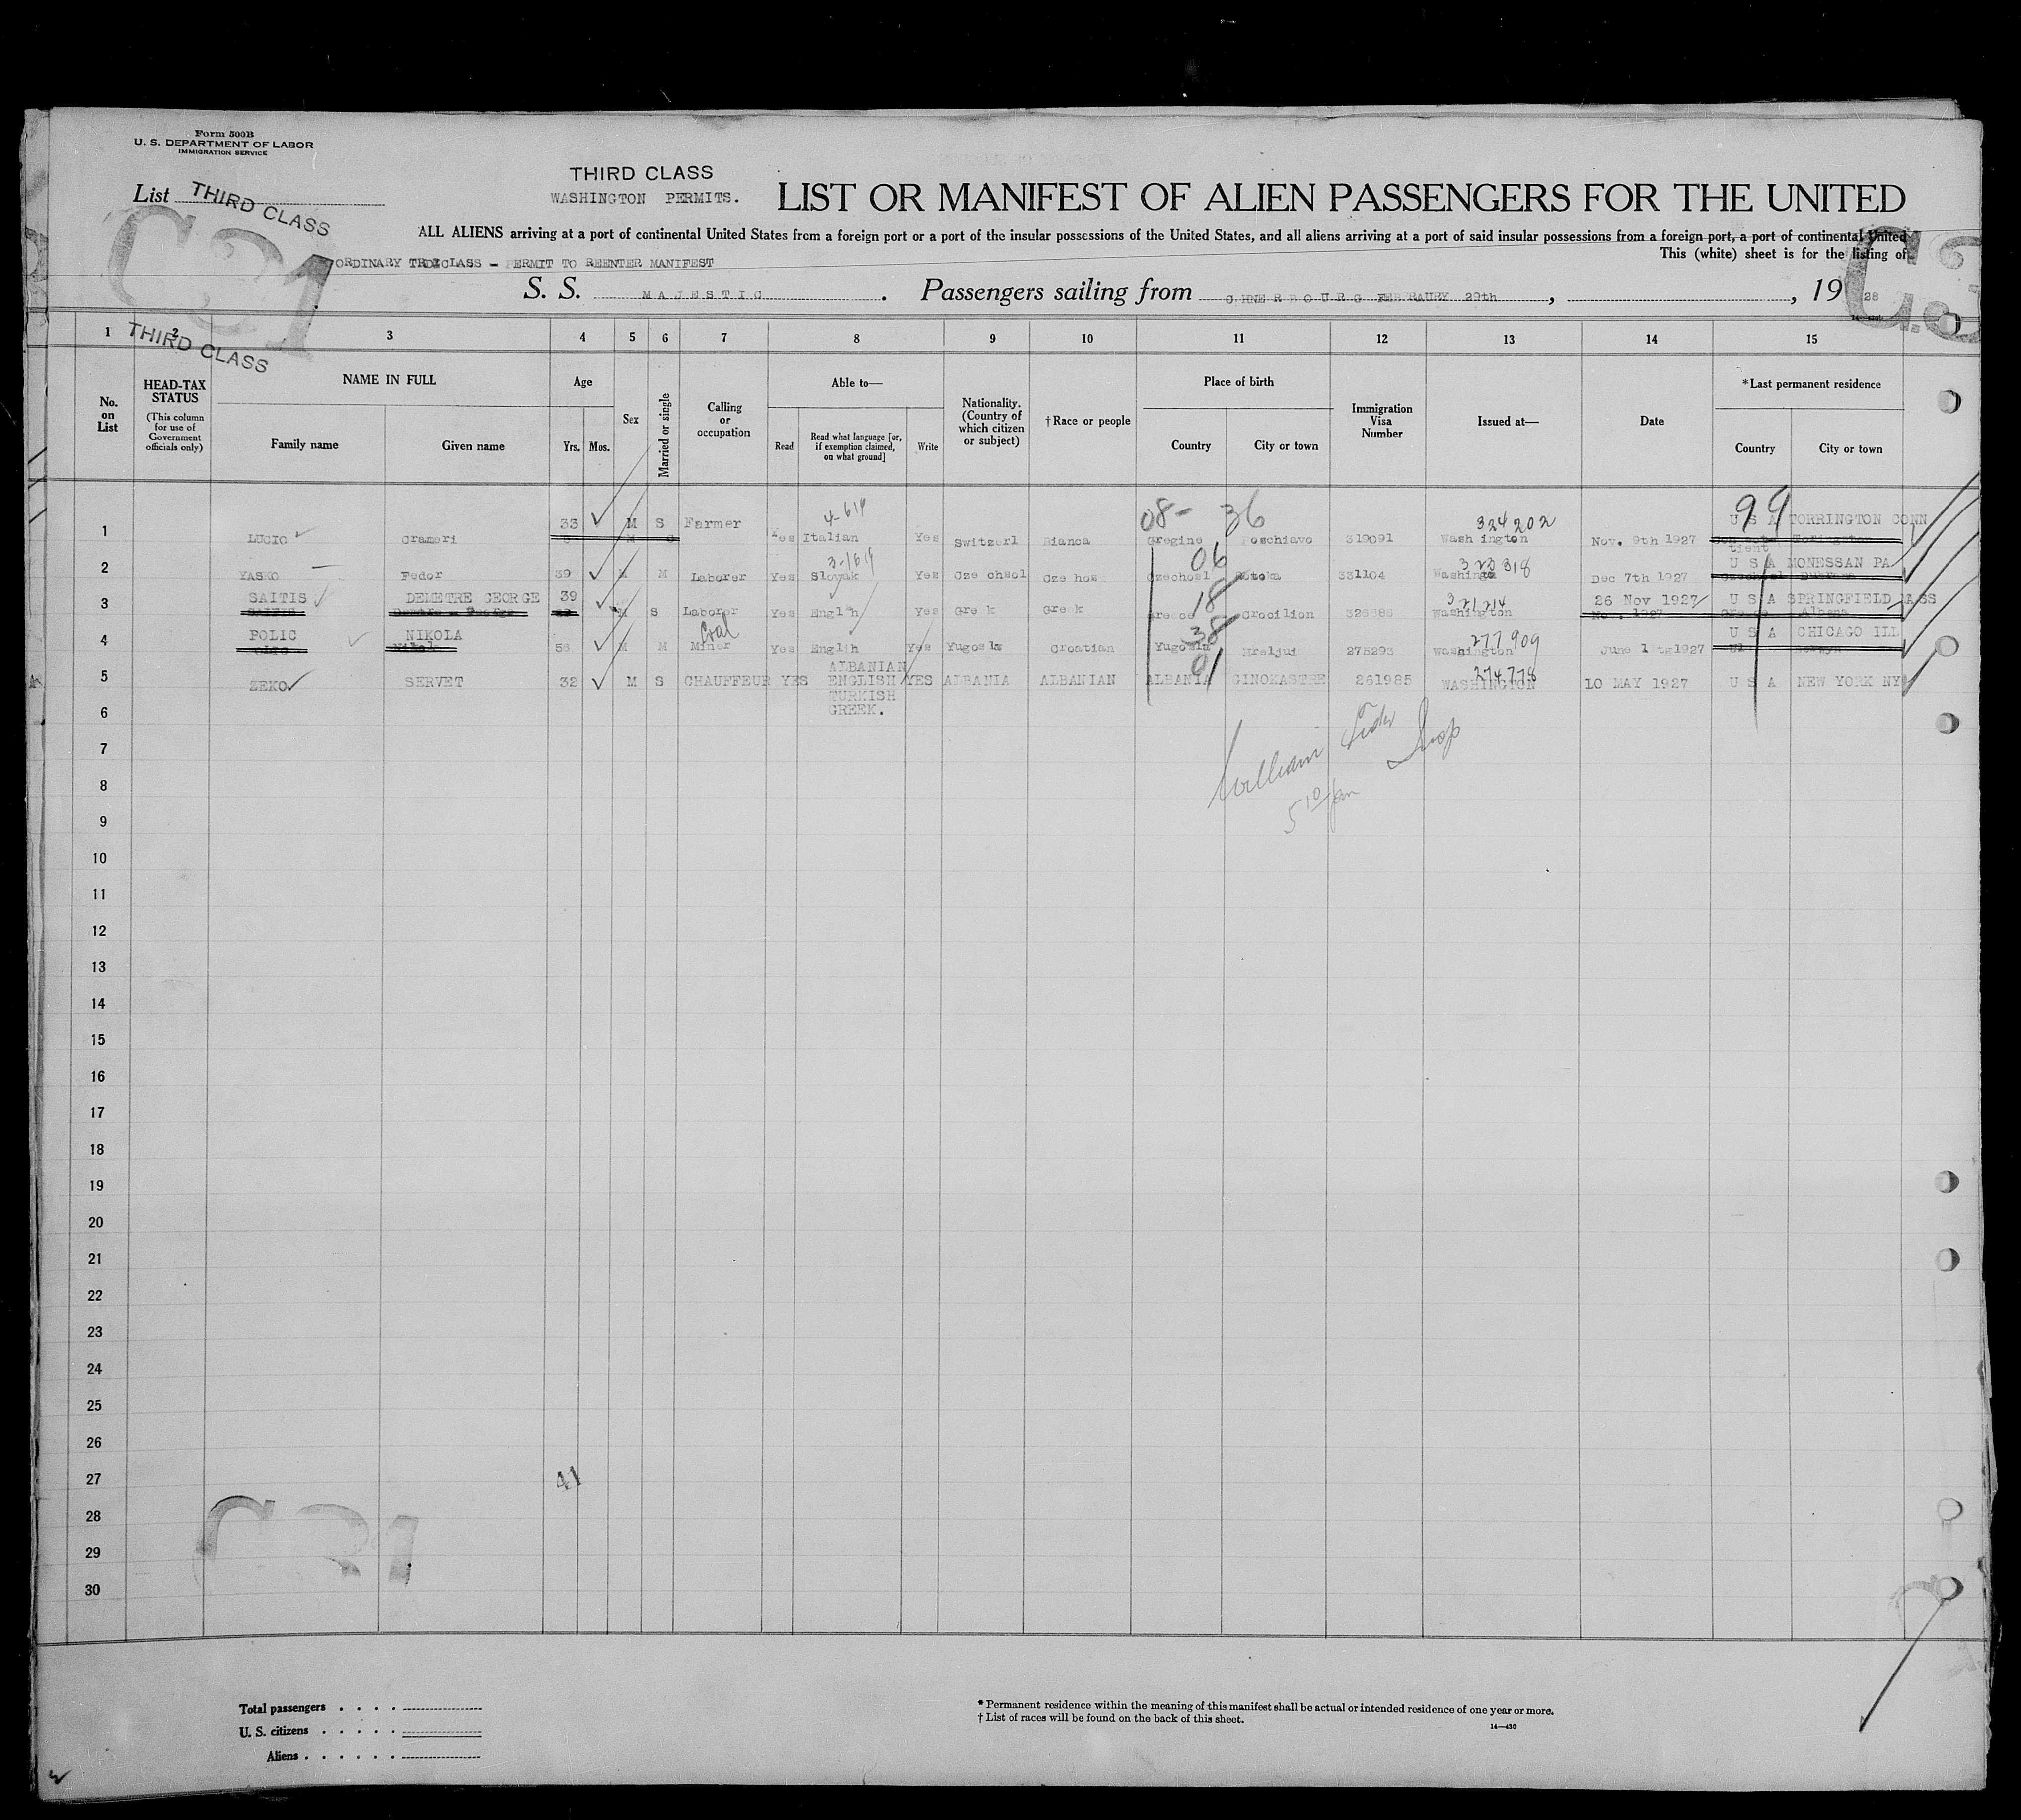 Form 500B
U. S. DEPARTMENT OF LABOR
IMMIGRATION SERVICE
THIRD CLASS
WASHINGTON PERMITS.
LIST OR MANIFEST OF ALIEN PASSENGERS FOR THE UNITED
List THIRD CLASS
ALL ALIENS arriving at a port of continental United States from a foreign port or a port of the insular possessions of the United States, and all aliens arriving at a port of said insular possessions from a foreign port, a port of continental United
This (white) sheet is for the listing of
ORDINARY CLASS - PERMIT TO REENTER MANIFEST
S. S. MAJESTIC. Passengers sailing from CHERBOURG FEBRAURY 29th, , 1928
C31
1 2 3 4 5 6 7 8 9 10 11 12 13 14 15
THIRD CLASS
No. on List
HEAD-TAX STATUS
(This column for use of Government officials only)
NAME IN FULL
Family name Given name
Age
Yrs. Mos.
Sex
Married or single
Calling or occupation
Able to—
Read Read what language [or, if exemption claimed, on what ground] Write
Nationality. (Country of which citizen or subject)
† Race or people
Place of birth
Country City or town
Immigration Visa Number
Issued at—
Date
*Last permanent residence
Country City or town
4-614 08- 36 324202 99
1 LUCIO Crameri 33 M S Farmer Yes Italian Yes Switzerl Bianca Gregine Poschiavo 319091 Wash ington Nov. 9th 1927 U S A TORRINGTON CONN
3-1614 06 323318
2 YASKO Fedor 39 M M Laborer Yes Slovak Yes Cze chsol Cze hos Czechosl 331104 Washingto Dec 7th 1927 U S A MONESSAN PA
18 321214
3 SAITIS DEMETRE GEORGE 39 M S Laborer Yes Englh Yes Gre k Gre k Greece Crocilion Washington 26 Nov 1927 U S A SPRINGFIELD MASS
Coal 38 277909
4 POLIC NIKOLA 56 M M Miner Yes Englih Yes Yugosla Croatian Yugosla Hreljui 275293 Washington June 1 tg1927 U S A CHICAGO ILL
01 274778
5 ZEKO SERVET 32 M S CHAUFFEUR YES ALBANIAN ENGLISH TURKISH GREEK. YES ALBANIA ALBANIAN ALBANIA GINOKASTRE 261985 WASHINGTON 10 MAY 1927 U S A NEW YORK NY
6
William Insp
7
8
5 10/pm
9
10
11
12
13
14
15
16
17
18
19
20
21
22
23
24
25
26
27 41
28
C31
29
30
Total passengers . . . .
U. S. citizens . . . . .
Aliens . . . . . .
* Permanent residence within the meaning of this manifest shall be actual or intended residence of one year or more.
† List of races will be found on the back of this sheet.
14—430